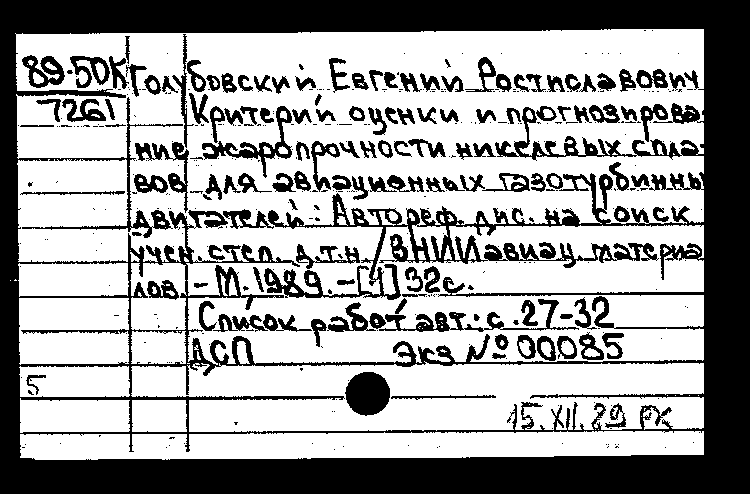 89-50К Голубовский Евгений Ростиславович
7261 Критерий оценки и прогнозирова-
ние жаропрочности никелевых спла-
вов для авиационных газотурбинны
двигателей: Автореф. дис. на соиск
учен. степ. д.т.н. / ВНИИавиац. материа
лов. - М. 1989. - [1] 32с.
Список работ авт.: с. 27-32
ДСП Экз № 00085
5
15.XII.89 РК